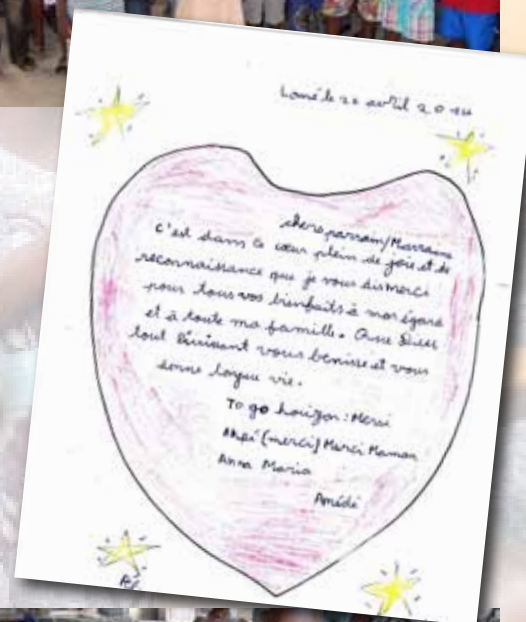 Lomé le 22 avril 2014
chers parrain/Marraine
C'est dans ce cœur plein de joie et de
reconnaissance que je vous dis merci
pour tous vos bienfaits à mon égard
et à toute ma famille. Que Dieu
tout Puissant vous benisse et vous
donne longue vie.
To go horizon : Merci
Akpé (merci) Merci Maman
Anna Maria
Amédé